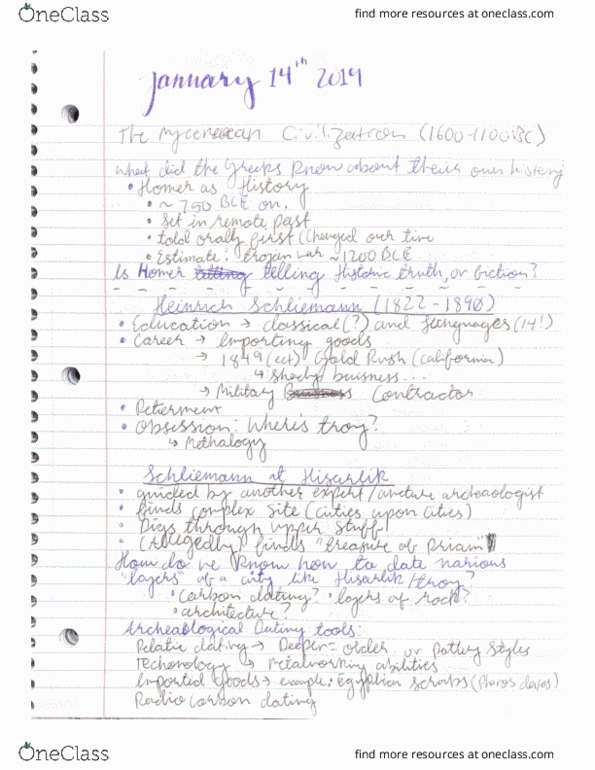 OneClass
find more resources at oneclass.com
January 14th 2019
The Mycenaean Civilization (1600-1100BC)
What did the Greeks know about their own history
• Homer as History
• ~ 750 BCE on.
• Set in remote past
• told orally first (Changed over time
• Estimate: trojan war ~1200 BCE
Is Homer telling Historic truth, or fiction?
Heinrich Schliemann (1822-1890)
• Education → classical(?) and languages (14!)
• Career → Importing goods
→ 1849(ect) Gold Rush (California)
↳ Shady buisness...
→ Military Contractor
• Retierment
• Obsession: Where's troy?
↳ Methalogy
Schliemann at Hisarlik
• guided by another expert/ archaeologist
• finds complex site (cities upon cities)
• Digs through upper stuff
• (Allegedly) finds "treasure of Priam"
How do we know how to date various
"layers" of a city like Hisarlik/troy?
• carbon dating? • layers of rock?
• architecture?
Archeaological Dating tools:
Relatie dating → Deeper = older or pottery styles
Techonology ↳ metalworking abilities
Imported goods → example: egyptian scrabs (Pharos dates)
Radio carbon dating
OneClass
find more resources at oneclass.com